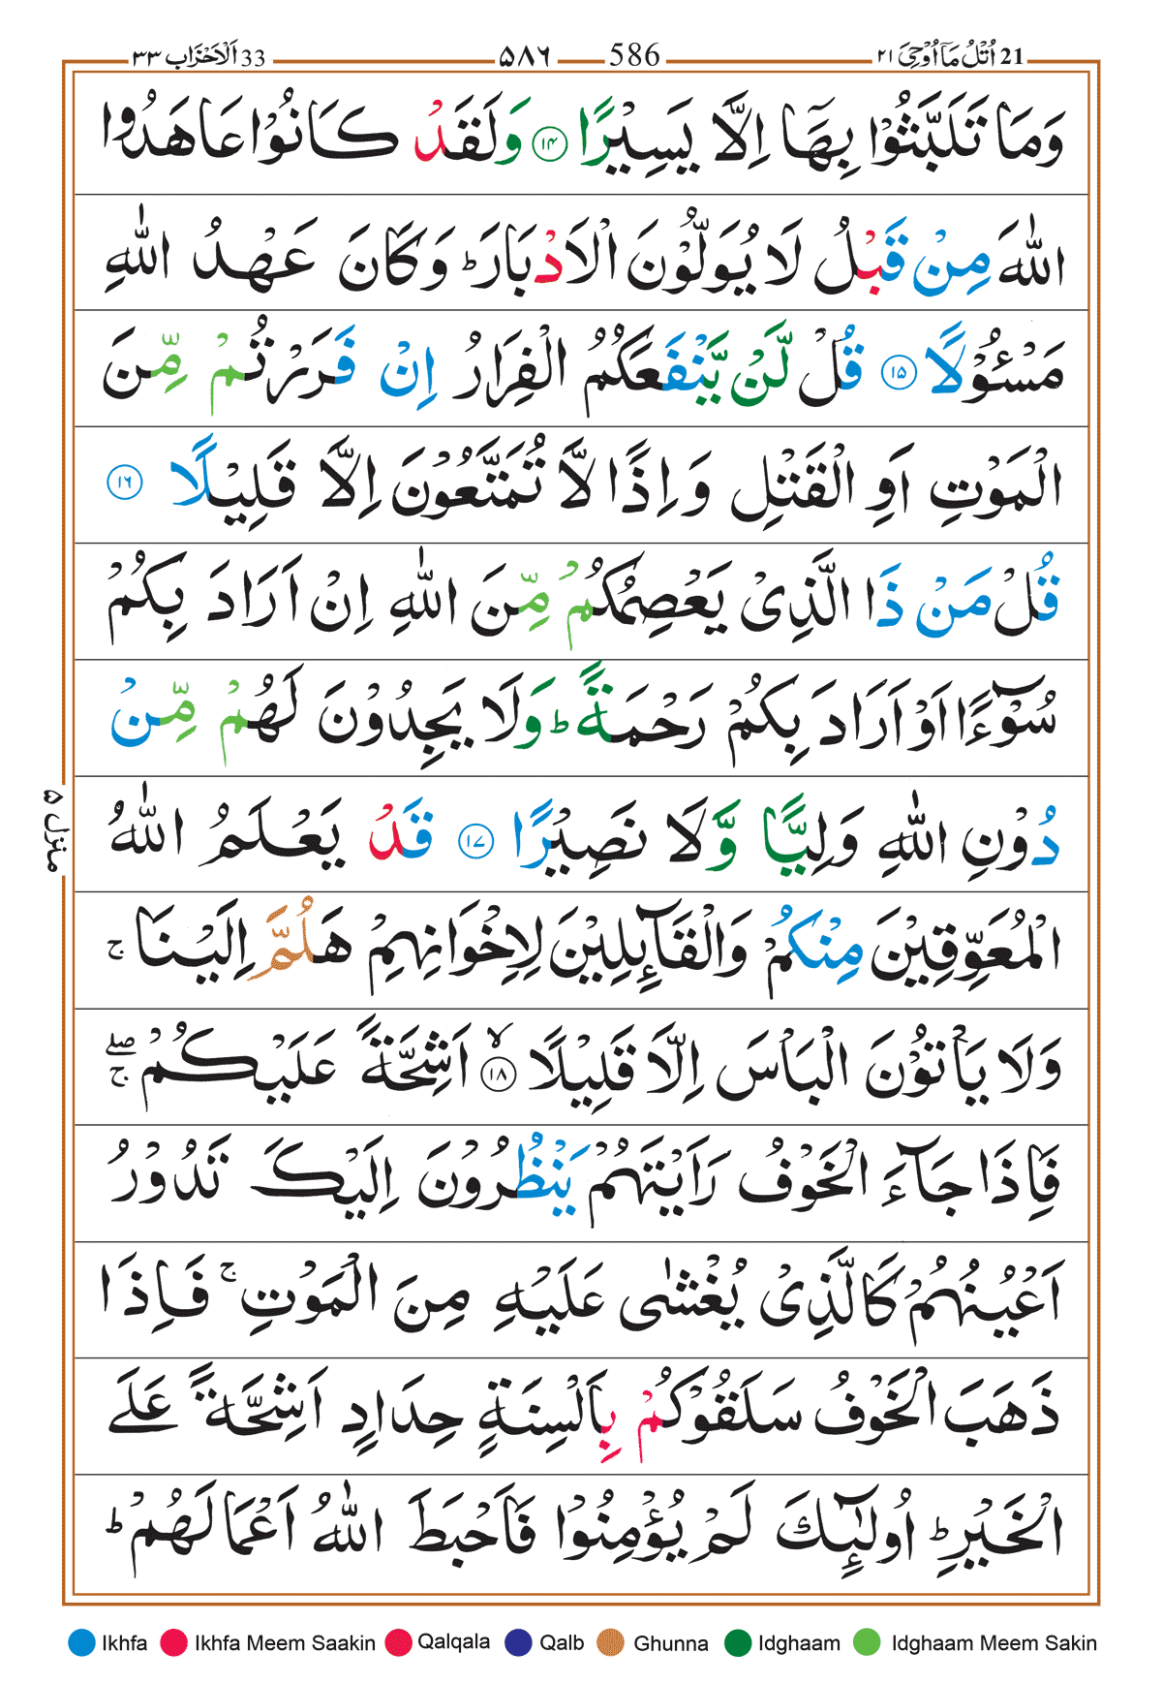 21 اُتْلُ مَاۤ اُوْحِیَ ۲۱ 586 ۵۸۶ 33 اَلْاَحْزَاب ۳۳
وَمَا تَلَبَّثُوْا بِهَاۤ اِلَّا یَسِیْرًا ۱۴ وَلَقَدْ كَانُوْا عَاهَدُوا
اللّٰهَ مِنْ قَبْلُ لَا یُوَلُّوْنَ الْاَدْبَارَ ؕ وَكَانَ عَهْدُ اللّٰهِ
مَسْـُٔوْلًا ۱۵ قُلْ لَّنْ یَّنْفَعَكُمُ الْفِرَارُ اِنْ فَرَرْتُمْ مِّنَ
الْمَوْتِ اَوِ الْقَتْلِ وَاِذًا لَّا تُمَتَّعُوْنَ اِلَّا قَلِیْلًا ۱۶
قُلْ مَنْ ذَا الَّذِیْ یَعْصِمُكُمْ مِّنَ اللّٰهِ اِنْ اَرَادَ بِكُمْ
سُوْٓءًا اَوْ اَرَادَ بِكُمْ رَحْمَةً ؕ وَلَا یَجِدُوْنَ لَهُمْ مِّنْ
دُوْنِ اللّٰهِ وَلِیًّا وَّلَا نَصِیْرًا ۱۷ قَدْ یَعْلَمُ اللّٰهُ
الْمُعَوِّقِیْنَ مِنْكُمْ وَالْقَآىِٕلِیْنَ لِاِخْوَانِهِمْ هَلُمَّ اِلَیْنَا ۚ
وَلَا یَاْتُوْنَ الْبَاْسَ اِلَّا قَلِیْلًا ۙ ۱۸ اَشِحَّةً عَلَیْكُمْ ۖۚ
فَاِذَا جَآءَ الْخَوْفُ رَاَیْتَهُمْ یَنْظُرُوْنَ اِلَیْكَ تَدُوْرُ
اَعْیُنُهُمْ كَالَّذِیْ یُغْشٰی عَلَیْهِ مِنَ الْمَوْتِ ۚ فَاِذَا
ذَهَبَ الْخَوْفُ سَلَقُوْكُمْ بِاَلْسِنَةٍ حِدَادٍ اَشِحَّةً عَلَی
الْخَیْرِ ؕ اُولٰٓىِٕكَ لَمْ یُؤْمِنُوْا فَاَحْبَطَ اللّٰهُ اَعْمَالَهُمْ ؕ
منزل ۵
Ikhfa Ikhfa Meem Saakin Qalqala Qalb Ghunna Idghaam Idghaam Meem Sakin